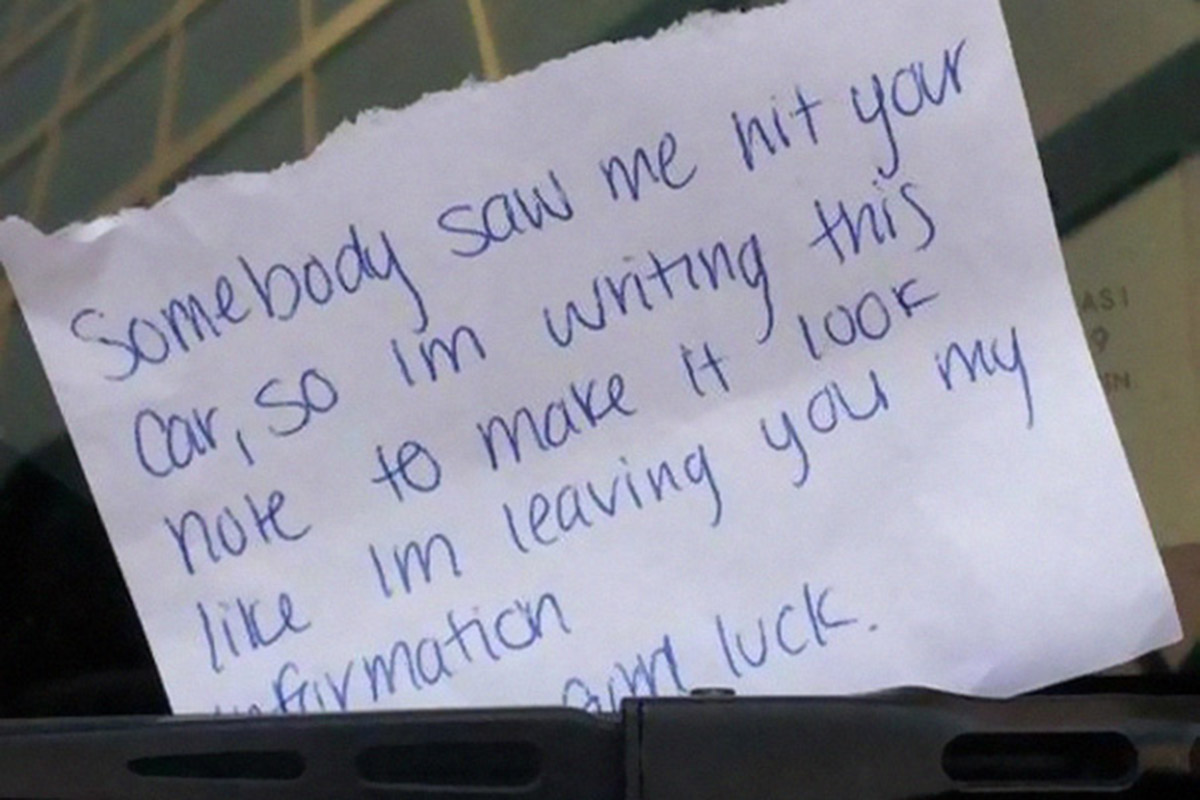 Somebody saw me hit your
car, so Im writing this
note to make it look
like Im leaving you my
information
Good luck.
ASI
9
EN